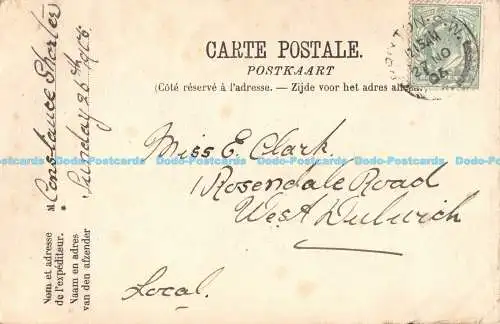 CARTE POSTALE.
POSTKAART
(Côté réservé à l'adresse. — Zijde voor het adres
Miss E. Clark.
1 Rosendale Road
West Dulwich
Local.
Constance Shorter
Sunday 25th
Nom et adresse
de l'expéditeur.
Naam en adres
van den afzender
NO
06
Dodo-Postcards Dodo-Postcards Dodo-Postcards Dodo-Postcards Dodo-Postcards